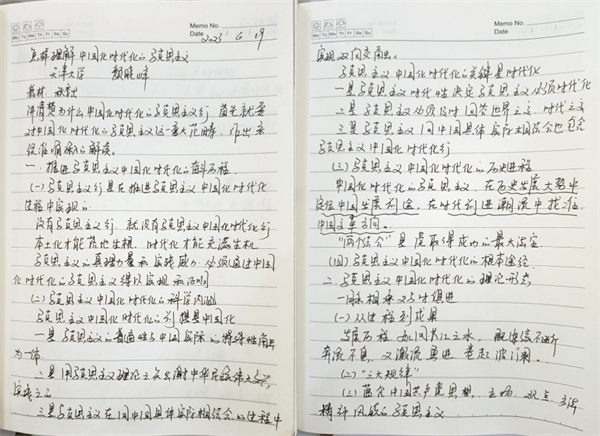 Memo No.
Mo Tu We Th Fr Sa Su
Date 2023 6 19
怎样理解中国化时代化的马克思主义
天津大学 颜晓峰
教材
讲清楚为什么中国化时代化的马克思主义行 首先就要
对中国化时代化的马克思主义这一重大范畴,作出系
统准确深入的解读。
一. 推进马克思主义中国化时代化的奋斗历程
(一) 马克思主义行是在推进马克思主义中国化时代化
进程中实现的
没有马克思主义行,就没有马克思主义中国化时代化行
本土化才能落地生根,时代化才能充满生机
马克思主义的真理力量和实践威力,必须通过中国
化时代化的马克思主义得以实现和活明
(二) 马克思主义中国化时代化的科学内涵
马克思主义中国化时代化的前提是中国化
一是马克思主义的普遍性与中国实际的特殊性
为一体
二是用马克思主义理论之矢射中华民族伟大
实践之的
三是马克思主义在同中国具体实际相结合的过程中
Memo No.
Mo Tu We Th Fr Sa Su
Date
实现双向交融。
马克思主义中国化时代化的关键是时代化
一是马克思主义时代性决定马克思主义必须时代化
二是马克思主义必须及时回答世界之问、时代之问
三是马克思主义同中国具体实际相结合也包含
马克思主义中国化时代化行
(三) 马克思主义中国化时代化的历史进程
中国化时代化的马克思主义,在历史发展大势中
定位中国发展列途,在时代前进潮流中找准
中国变革方向。
"两个结合"是我取得成功的最大法宝
(四) 马克思主义中国化时代化的根本途径
二. 马克思主义中国化时代化的理论形态
一脉相承又与时俱进
(一) 从进程到成果
发展历程,如同长江之水,既连续不断
奔流不息,又激流勇进 卷起波澜。
(二) "三大规律"
(三) 蕴含中国共产党思想、立场、观点 方法
精神风貌的马克思主义